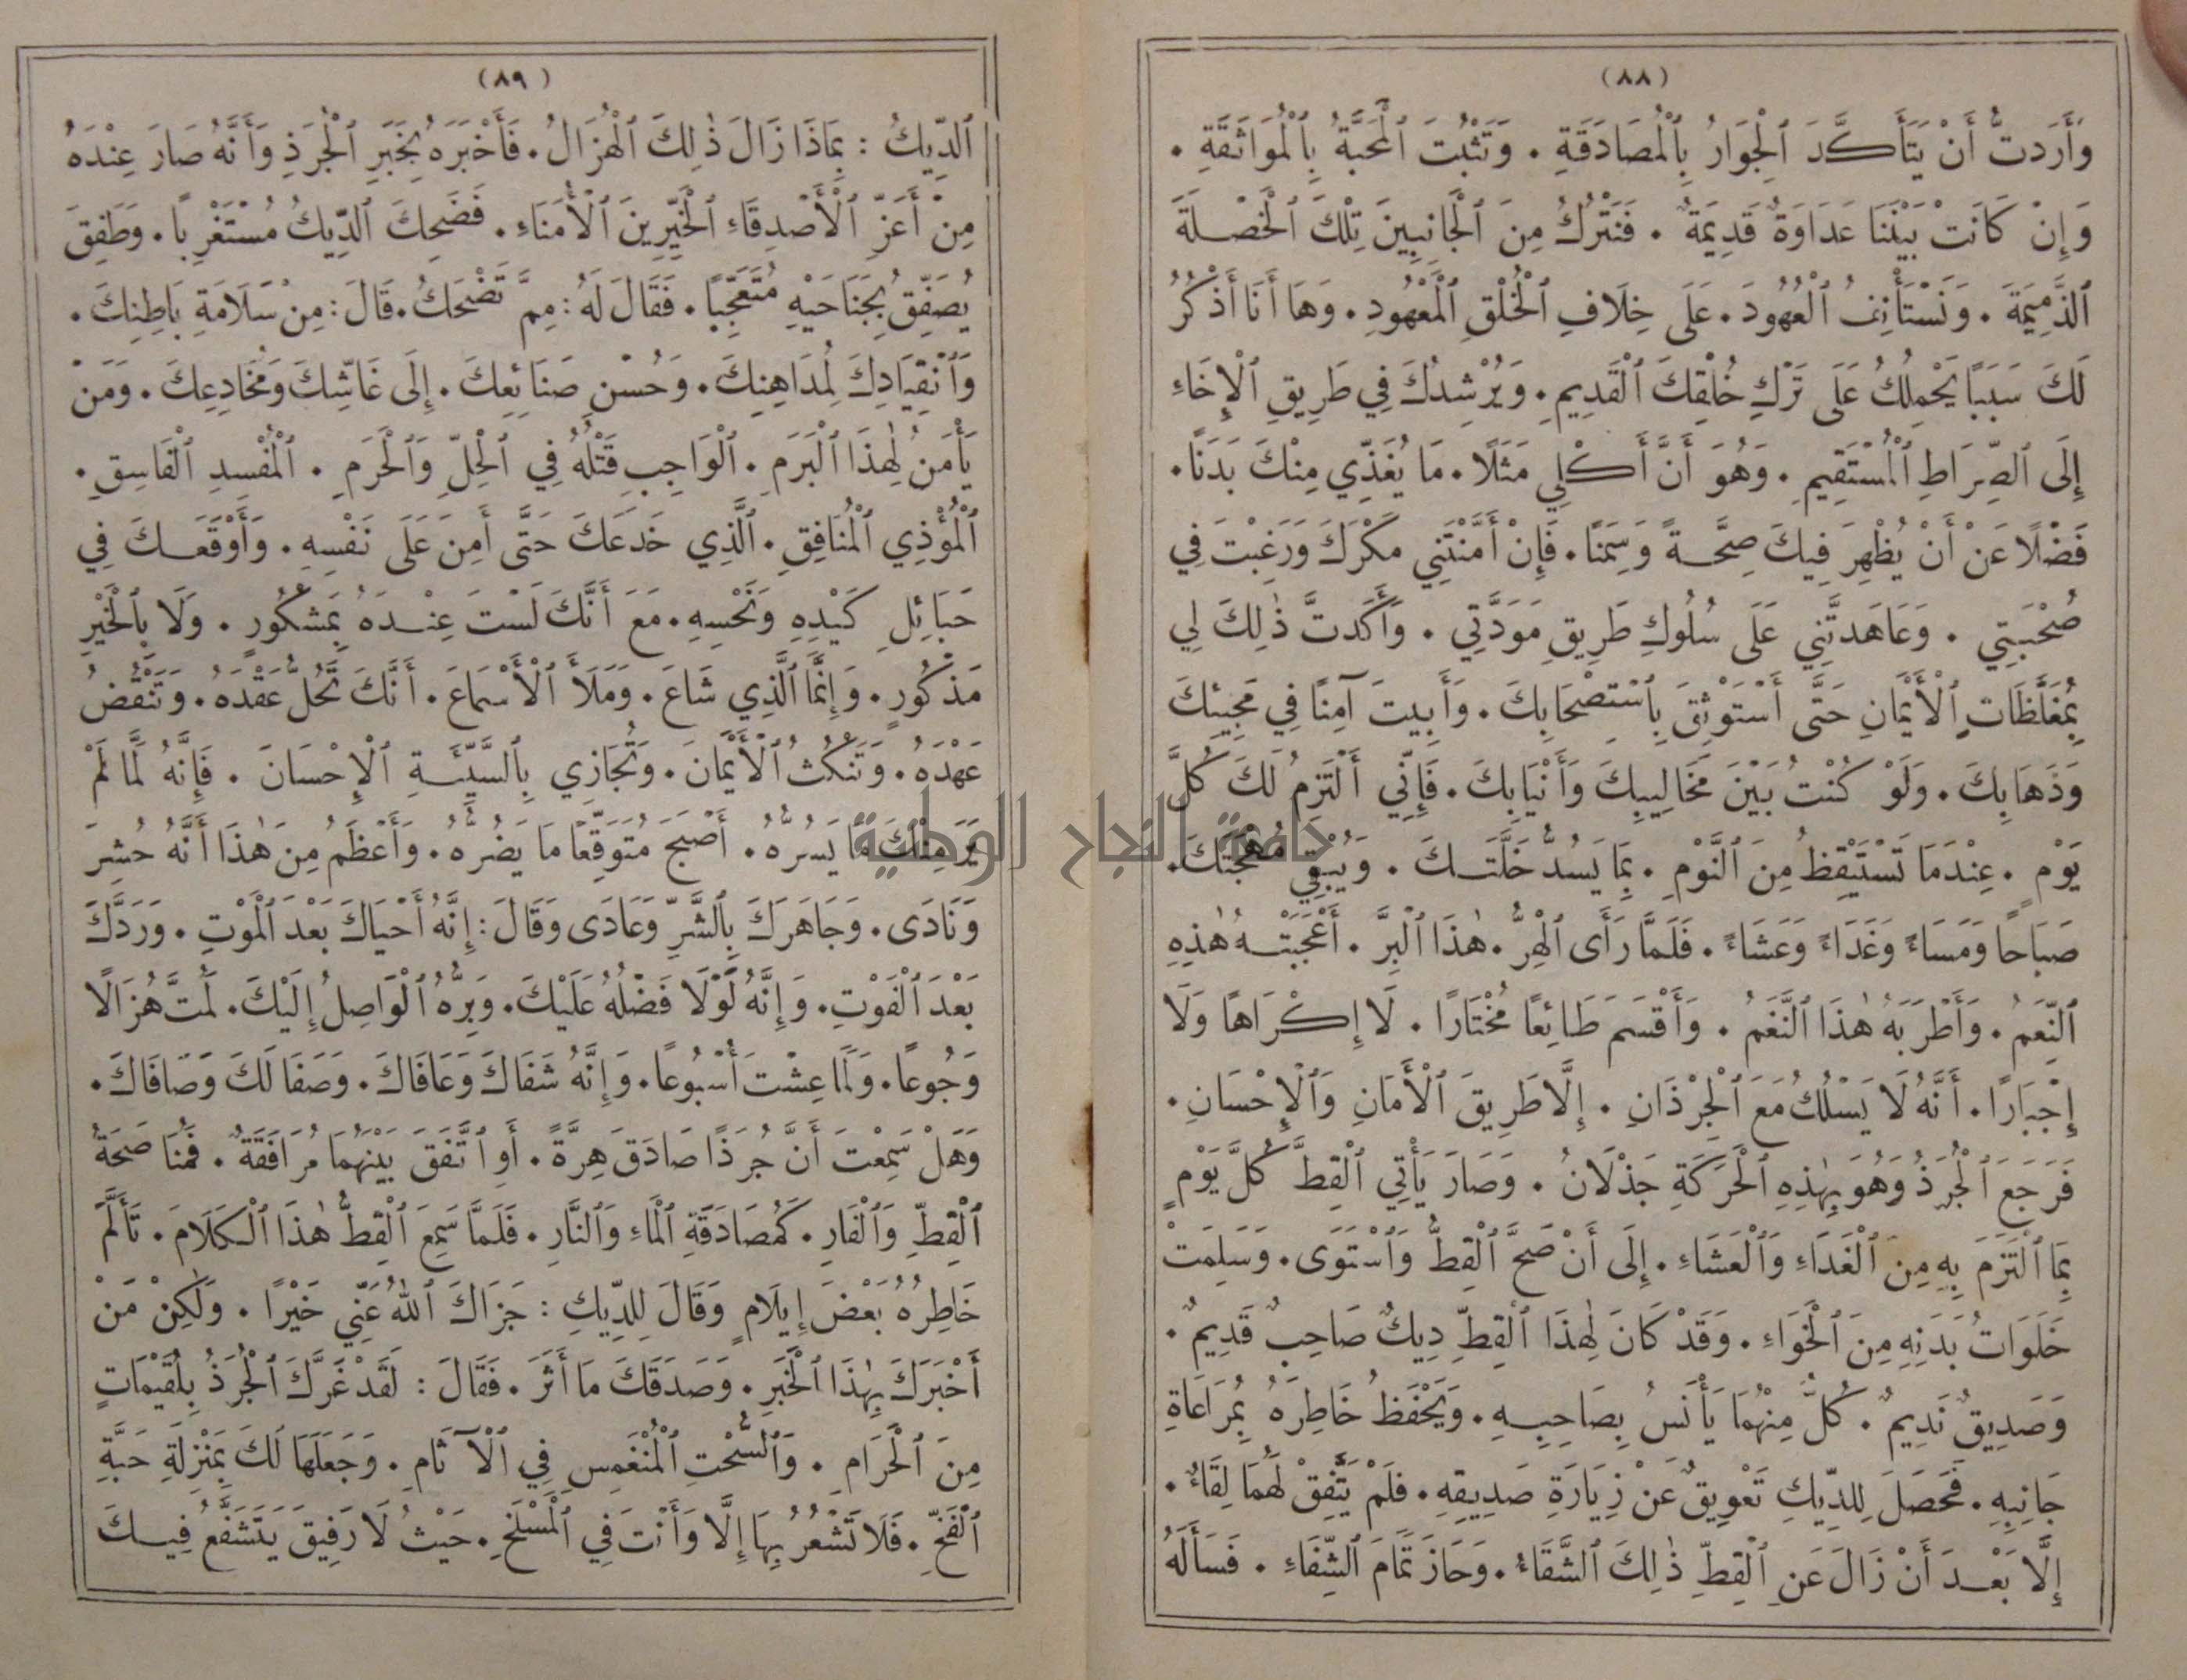 (٨٨)
وَأَرَدتُّ أَنْ يَتَأَكَّدَ ٱلْجِوَارُ بِٱلْمُصَادَقَةِ . وَتَثْبُتَ ٱلْمَحَبَّةُ بِٱلْمُوَاثَقَةِ .
وَإِنْ كَانَتْ بَيْنَنَا عَدَاوَةٌ قَدِيمَةٌ . فَنَتْرُكُ مِنَ ٱلْجَانِبِينَ تِلْكَ ٱلْخَصْلَةَ
ٱلذَّمِيمَةَ . وَنَسْتَأْنِفُ ٱلْعُهُودَ . عَلَى خِلَافِ ٱلْخُلْقِ ٱلْمَعْهُودِ . وَهَا أَنَا أَذْكُرُ
لَكَ سَبَبًا يَحْمِلُكُ عَلَى تَرْكِ خُلْقِكَ ٱلْقَدِيمِ . وَيُرْشِدُكَ فِي طَرِيقِ ٱلْإِخَاءِ
إِلَى ٱلصِّرَاطِ ٱلْمُسْتَقِيمِ . وَهُوَ أَنَّ أَكْلِي مَثَلًا . مَا يُغَذِّي مِنْكَ بَدَنًا .
فَضْلًا عَنْ أَنْ يُظْهِرَ فِيكَ صِحَّةً وَسِمَنًا . فَإِنْ أَمَّنْتَنِي مَكْرَكَ وَرَغِبْتَ فِي
صُحْبَتِي . وَعَاهَدتَّنِي عَلَى سُلُوكِ طَرِيقِ مَوَدَّتِي . وَأَكَدتَّ ذٰلِكَ لِي
بِمُغَلَّظَاتِ ٱلْأَيْمَانِ حَتَّى أَسْتَوْثِقَ بِٱسْتِصْحَابِكَ . وَأَبِيتَ آمِنًا فِي مَجِيئِكَ
وَذَهَابِكَ . وَلَوْ كُنْتُ بَيْنَ مَخَالِيبِكَ وَأَنْيَابِكَ . فَإِنِّي أَلْتَزِمُ لَكَ كُلَّ
يَوْمٍ . عِنْدَمَا تَسْتَيْقِظُ مِنَ ٱلنَّوْمِ . بِمَا يَسُدُّ خَلَّتَكَ . وَيُبْقِي مُهْجَتَكَ .
صَبَاحًا وَمَسَاءً وَغَدَاءً وَعَشَاءً . فَلَمَّا رَأَى ٱلْهِرُّ . هٰذَا ٱلْبِرَّ . أَعْجَبَتْهُ هٰذِهِ
ٱلنِّعَمُ . وَأَطْرَبَهُ هٰذَا ٱلنَّغَمُ . وَأَقْسَمَ طَائِعًا مُخْتَارًا . لَا إِكْرَاهًا وَلَا
إِجْبَارًا . أَنَّهُ لَا يَسْلُكُ مَعَ ٱلْجِرْذَانِ . إِلَّا طَرِيقَ ٱلْأَمَانِ وَٱلْإِحْسَانِ .
فَرَجَعَ ٱلْجُرَذُ وَهُوَ بِهٰذِهِ ٱلْحَرَكَةِ جَذْلَانُ . وَصَارَ يَأْتِي ٱلْقِطَّ كُلَّ يَوْمٍ
بِمَا ٱلْتَزَمَ بِهِ مِنَ ٱلْغَدَاءِ وَٱلْعَشَاءِ . إِلَى أَنْ صَحَّ ٱلْقِطُّ وَٱسْتَوَى . وَسَلِمَتْ
خَلَوَاتُ بَدَنِهِ مِنَ ٱلْخَوَاءِ . وَقَدْ كَانَ لِهٰذَا ٱلْقِطِّ دِيكٌ صَاحِبٌ قَدِيمٌ .
وَصَدِيقٌ نَدِيمٌ . كُلٌّ مِنْهُمَا يَأْنَسُ بِصَاحِبِهِ . وَيَحْفَظُ خَاطِرَهُ بِمُرَاعَاةِ
جَانِبِهِ . فَحَصَلَ لِلدِّيكِ تَعْوِيقٌ عَنْ زِيَارَةِ صَدِيقِهِ . فَلَمْ يَتَّفِقْ لَهُمَا لِقَاءٌ .
إِلَّا بَعْدَ أَنْ زَالَ عَنِ ٱلْقِطِّ ذٰلِكَ ٱلشَّقَاءُ . وَحَازَ تَمَامَ ٱلشِّفَاءِ . فَسَأَلَهُ
(٨٩)
ٱلدِّيكُ : بِمَاذَا زَالَ ذٰلِكَ ٱلْهُزَالُ . فَأَخْبَرَهُ بِخَبَرِ ٱلْجُرَذِ وَأَنَّهُ صَارَ عِنْدَهُ
مِنْ أَعَزِّ ٱلْأَصْدِقَاءِ ٱلْخَيِّرِينَ ٱلْأُمَنَاءِ . فَضَحِكَ ٱلدِّيكُ مُسْتَغْرِبًا . وَطَفِقَ
يُصَفِّقُ بِجَنَاحَيْهِ مُتَعَجِّبًا . فَقَالَ لَهُ : مِمَّ تَضْحَكُ . قَالَ : مِنْ سَلَامَةِ بَاطِنِكَ .
وَٱنْقِيَادِكَ لِمُدَاهِنِكَ . وَحُسْنِ صَنَائِعِكَ . إِلَى غَاشِّكَ وَمُخَادِعِكَ . وَمَنْ
يَأْمَنُ لِهٰذَا ٱلْبَرَمِ . ٱلْوَاجِبِ قَتْلُهُ فِي ٱلْحِلِّ وَٱلْحَرَمِ . ٱلْمُفْسِدِ ٱلْفَاسِقِ .
ٱلْمُؤْذِي ٱلْمُنَافِقِ . ٱلَّذِي خَدَعَكَ حَتَّى أَمِنَ عَلَى نَفْسِهِ . وَأَوْقَعَكَ فِي
حَبَائِلِ كَيْدِهِ وَنَحْسِهِ . مَعَ أَنَّكَ لَسْتَ عِنْدَهُ بِمَشْكُورٍ . وَلَا بِٱلْخَيْرِ
مَذْكُورٍ . وَإِنَّمَا ٱلَّذِي شَاعَ . وَمَلَأَ ٱلْأَسْمَاعَ . أَنَّكَ تَحُلُّ عَقْدَهُ . وَتَنْقُضُ
عَهْدَهُ . وَتَنْكُثُ ٱلْأَيْمَانَ . وَتُجَازِي بِٱلسَّيِّئَةِ ٱلْإِحْسَانَ . فَإِنَّهُ لَمَّا لَمْ
يَرَ مِنْكَ مَا يَسُرُّهُ . أَصْبَحَ مُتَوَقِّعًا مَا يَضُرُّهُ . وَأَعْظَمُ مِنَ هٰذَا أَنَّهُ حُشِرَ
وَنَادَى . وَجَاهَرَكَ بِٱلشَّرِّ وَعَادَى وَقَالَ : إِنَّهُ أَحْيَاكَ بَعْدَ ٱلْمَوْتِ . وَرَدَّكَ
بَعْدَ ٱلْفَوْتِ . وَإِنَّهُ لَوْلَا فَضْلُهُ عَلَيْكَ . وَبِرُّهُ ٱلْوَاصِلُ إِلَيْكَ . لَمُتَّ هُزَالًا
وَجُوعًا . وَلَمَا عِشْتَ أُسْبُوعًا . وَإِنَّهُ شَفَاكَ وَعَافَاكَ . وَصَفَا لَكَ وَصَافَاكَ .
وَهَلْ سَمِعْتَ أَنَّ جُرَذًا صَادَقَ هِرَّةً . أَوِ ٱتَّفَقَ بَيْنَهُمَا مُرَافَقَةٌ . فَمُنَاصَحَةُ
ٱلْقِطِّ وَٱلْفَارِ . كَمُصَادَقَةِ ٱلْمَاءِ وَٱلنَّارِ . فَلَمَّا سَمِعَ ٱلْقِطُّ هٰذَا ٱلْكَلَامَ . تَأَلَّمَ
خَاطِرُهُ بَعْضَ إِيلَامٍ وَقَالَ لِلدِّيكِ : جَزَاكَ ٱللهُ عَنِّي خَيْرًا . وَلٰكِنْ مَنْ
أَخْبَرَكَ بِهٰذَا ٱلْخَبَرِ . وَصَدَقَكَ مَا أَثَرَ . فَقَالَ : لَقَدْ غَرَّكَ ٱلْجُرَذُ بِلُقَيْمَاتٍ
مِنَ ٱلْحَرَامِ . وَٱلسُّحْتِ ٱلْمُنْغَمِسِ فِي ٱلْآثَامِ . وَجَعَلَهَا لَكَ بِمَنْزِلَةِ حَبَّةِ
ٱلْفَخِّ . فَلَا تَشْعُرُ بِهَا إِلَّا وَأَنْتَ فِي ٱلْمَسْلَخِ . حَيْثُ لَا رَفِيقَ يَتَشَفَّعُ فِيكَ
جامعة النجاح الوطنية